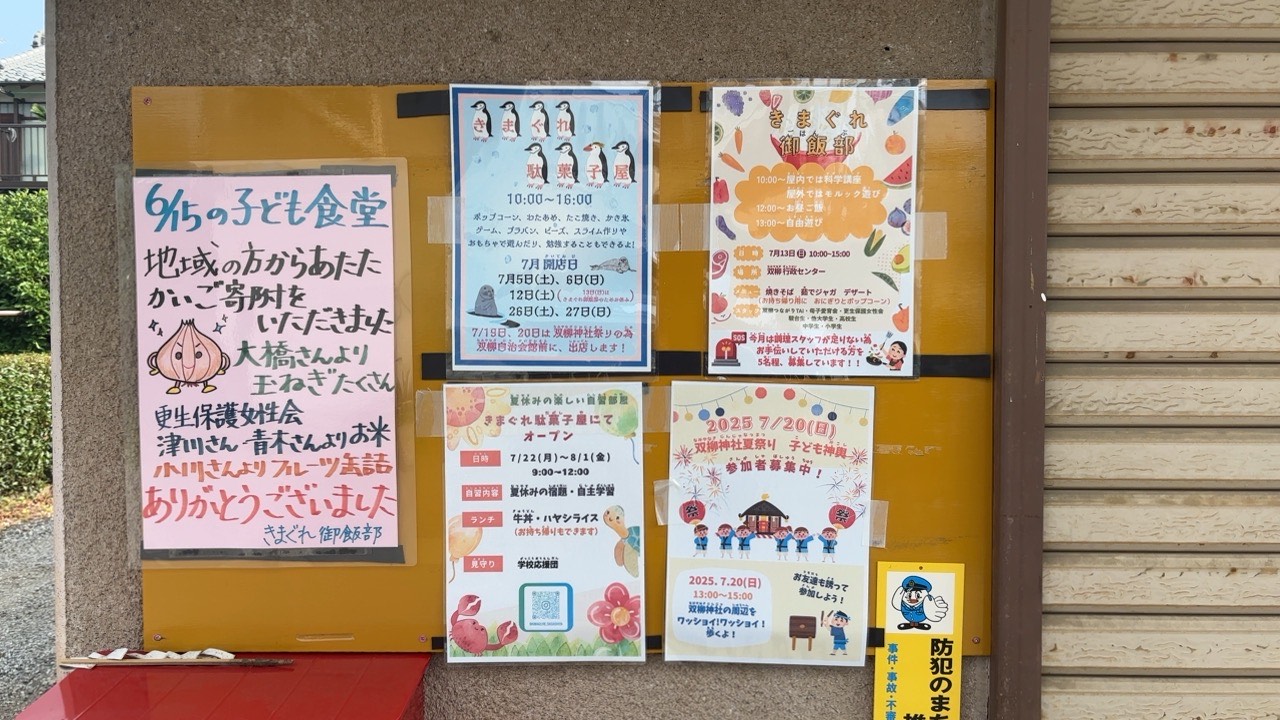 6/15の子ども食堂
地域の方からあたた
かいご寄附を
いただきました
大橋さんより
玉ねぎたくさん
更生保護女性会
津川さん・青木さんよりお米
小川さんよりフルーツ缶詰
ありがとうございました
きまぐれ御飯部
きまぐれ
駄菓子屋
10:00~16:00
ポップコーン、わたあめ、たこ焼き、かき氷
ゲーム、プラバン、ビーズ、スライム作りや
おもちゃで遊んだり、勉強することもできるよ!
7月 開店日
7月5日(土)、6日(日)
12日(土)
26日(土)、27日(日)
7/19日、20日は双柳神社祭りの為
双柳自治会館前に、出店します!
きまぐれ
ごはんぶ
御飯部
10:00~屋内では科学講座
屋外ではモルック遊び
12:00~お昼ご飯
13:00~自由遊び
日時 7月13日(日) 10:00~15:00
場所 双柳行政センター
焼きそば 茹でジャガ デザート
(お持ち帰り用に おにぎりとポップコーン)
双柳つながりTAI・母子愛育会・更生保護女性会
駿台生・他大学生・高校生
中学生・小学生
SOS
今月は調理スタッフが足りない為
お手伝いしていただける方を
5名程、募集しています!!
夏休みの楽しい自習部屋
きまぐれ駄菓子屋にて
オープン
日時 7/22(月)~8/1(金)
9:00~12:00
自習内容 夏休みの宿題・自主学習
ランチ 牛丼・ハヤシライス
(お持ち帰りもできます)
見守り 学校応援団
2025 7/20(日)
双柳神社夏祭り 子ども神輿
参加者募集中!
祭
祭
2025. 7.20(日)
13:00~15:00
双柳神社の周辺を
ワッショイ!ワッショイ!
歩くよ!
お友達も誘って
参加しよう!
防犯のま
事件・事故・不審